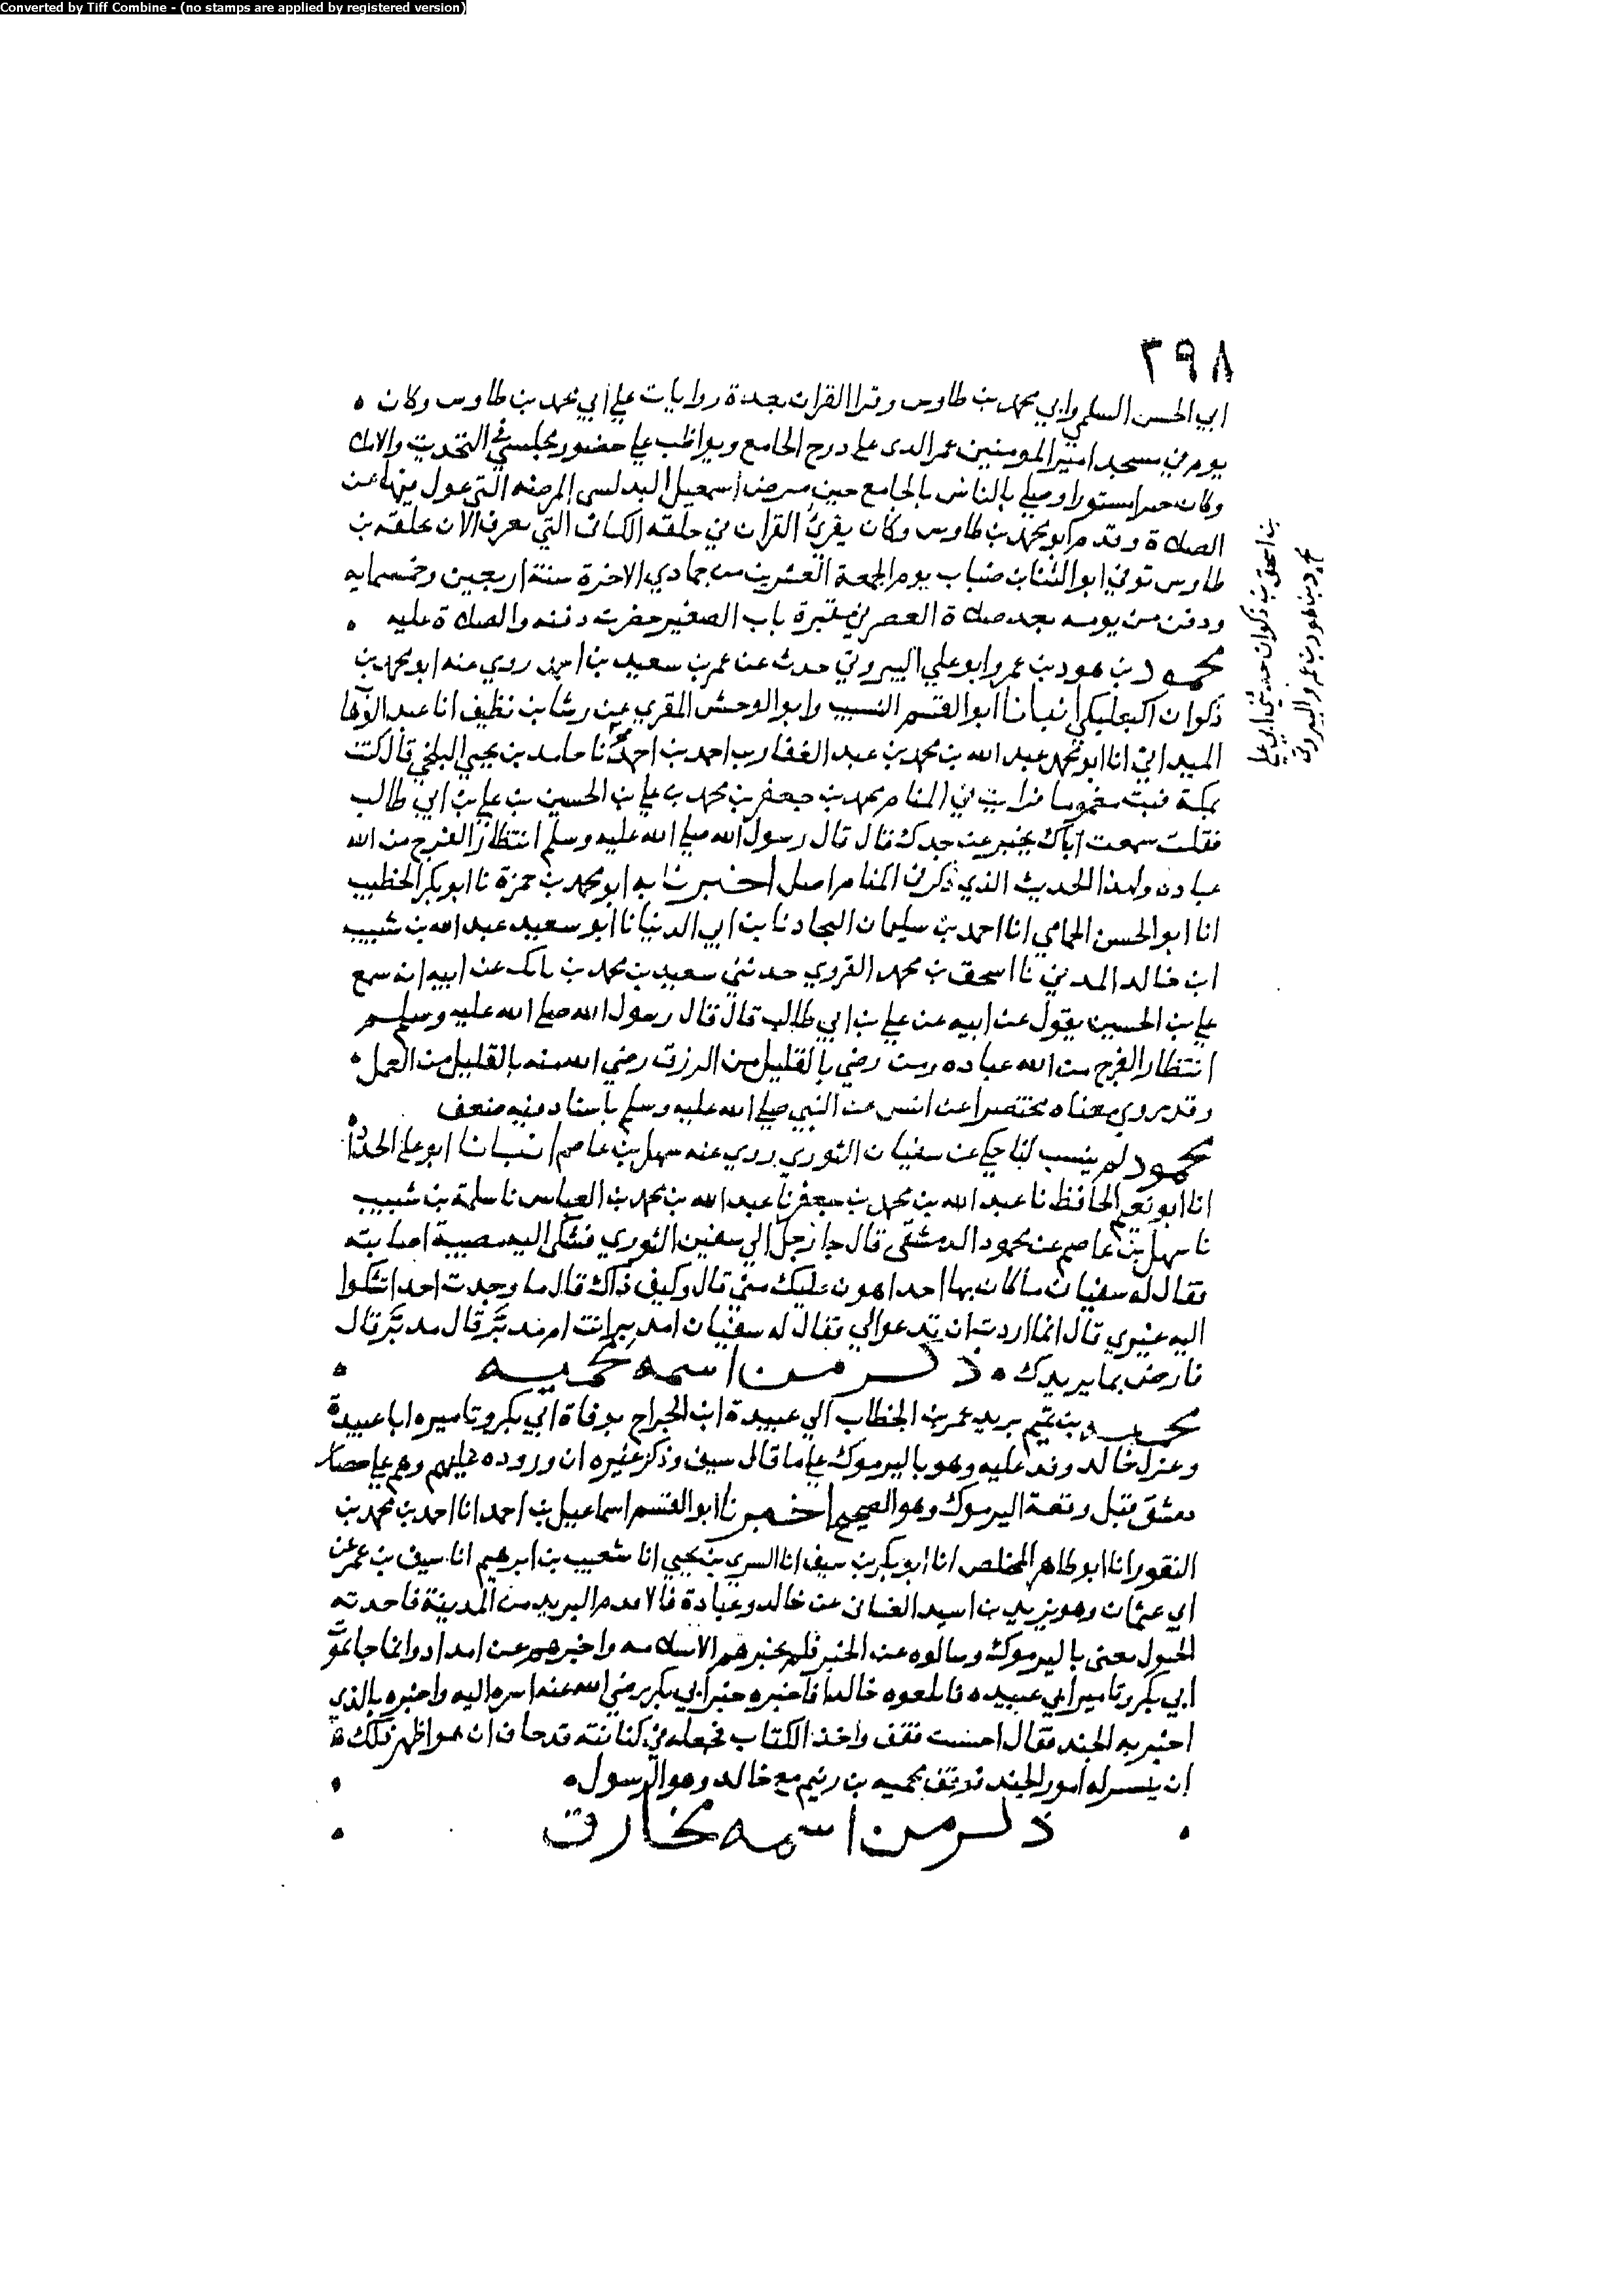 Converted by Tiff Combine - (no stamps are applied by registered version)
٣٩٨
ابي الحسن السلمي وابي محمد بن طاوس وقرا القران بعدة روايات علي ابي محمد بن طاوس وكان
يوم في مسجد امير المومنين عمر الدى على درج الجامع ويواظب علي حضور مجلسي في التحديث والاملا
وكان خيرا مستورا وصلي بالناس بالجامع حين مرض اسمعيل البدلسى المرضه التي عول فيها عن
الصلاة وقدم ابو محمد بن طاوس وكان يقرئ القران في حلقه الكتانى التي تعرف الان بحلقه بن
طاوس توفي ابو الثنا بن ضباب يوم الجمعة العشرين من جمادي الاخرة سنة اربعين وخمسمايه
ودفن من يومه بعد صلاة العصر في مقبرة باب الصغير حضرت دفنه والصلاة عليه
محمود بن هود بن عمرو ابو علي البيروتي حدث عن عمر بن سعيد بن روي عنه ابو محمد بن
ذكوان البعلبكي انبانا ابو القسم النسيب وابو الوحش المقري عن رشا بن نظيف انا عبد الوهاب
الميداني انا ابو محمد عبد الله بن محمد بن عبد الغفار بن احمد بن نا حامد بن يحيي البلخي قال كنت
بمكة فبت مغموما فرايت في المنام محمد بن جعفر بن محمد بن علي بن الحسين بن علي بن ابي طالب
فقلت سمعت اباك يخبر عن جدك قال قال رسول الله صلي الله عليه وسلم انتظار الفرج من الله
عباده ولهذا الحديث الذي ذكر في المنام اصل اخبرنا به ابو محمد بن حمزة نا ابو بكر الخطيب
انا ابو الحسن الحمامي انا احمد بن سليمان النجاد نا بن ابي الدنيا نا ابو سعيد عبد الله بن شبيب
ابن خالد المديني نا اسحق بن محمد الفروي حدثني سعيد بن محمد بن بانك عن ابيه انه سمع
علي بن الحسين يقول عن ابيه عن علي بن ابي طالب قال قال رسول الله صلي الله عليه وسلم
انتظار الفرج من الله عباده ومن رضي بالقليل من الرزق رضي الله منه بالقليل من العمل
وقد روي معناه مختصرا عن انس عن النبي صلي الله عليه وسلم باسناد فيه ضعف
محمود لم ينسب لنا حكي عن سفيان الثوري روي عنه سهل بن عاصم انبانا ابو علي الحداد
انا ابو نعيم الحافظ نا عبد الله بن محمد بن جعفر نا عبد الله بن محمد بن العباس نا سلمة بن شبيب
نا سهل بن عاصم عن محمود الدمشقي قال جا رجل الي سفين الثوري فشكى اليه مصيبة اصابته
فقال له سفيان ما كان بها احدا اهون عليك مني قال وكيف ذاك قال ما وجدت احدا تشكوا
اليه غيري قال انما اردت ان تدعوا لي فقال له سفيان امدبر انت ام مدبر قال مدبر قال
فارض بما يريدك ذكر من اسمه محميه
محميه بن ثنيم بريد عمر بن الخطاب الي عبيدة ابن الجراح بوفاة ابي بكر وتاميره ابا عبيدة
وعزل خالد وفد عليه وهو باليرموك علي ما قال سيف وذكر غيره ان وروده عليهم وهم علي حصار
دمشق قبل وقعة اليرموك وهو الصحيح اخبرنا ابو القسم اسماعيل بن احمد انا احمد بن محمد بن
النقور انا ابو طاهر المخلص انا ابو بكر بن سيف انا السري بن يحيي انا شعيب بن ابرهيم انا سيف بن عمر عن
ابي عثمان وهو يزيد بن اسيد الغسانى عن خالد وعبادة قالا قدم البريد من المدينة فاخذته
الخيول يعنى باليرموك وسالوه عن الخبر فلم يخبرهم الا سلامه واخبرهم عن امداد وانما جا بموت
ابي بكر وتامير ابي عبيده فابلغوه خالدا فاخبره خبر ابي بكر رضي الله عنه اسره اليه واخبره بالذي
اخبر به الجند فقال احسنت فقف واخذ الكتاب فجعله في كنانته وخاف ان هو اظهر ذلك
ان ينتشر له امور الجند فوقف محميه بن زنيم مع خالد وهو الرسول
ذكر من اسمه مخارق
بن اسحق بن ذكوان حدثني ابي علي
محمود بن هود بن عمرو البيروتي